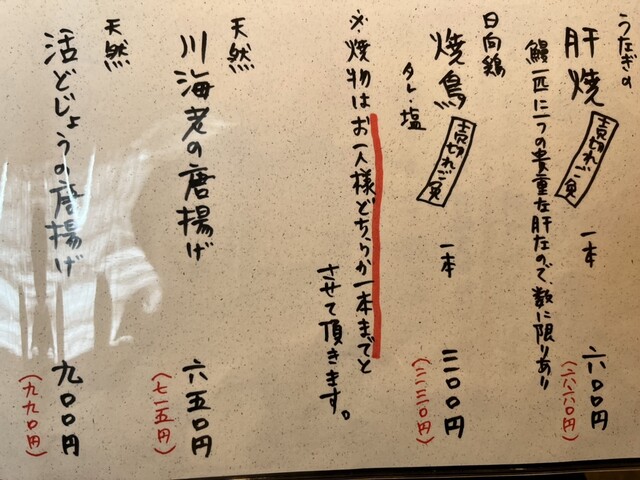 うなぎの
肝焼 売切れご免 一本 六〇〇円
(六六〇円)
鰻一匹に一つの貴重な肝なので、数に限りあり
日向鶏
焼鳥 売切れご免 一本 三〇〇円
(三三〇円)
タレ・塩
※焼物はお一人様どちらか一本までと
させて頂きます。
天然
川海老の唐揚げ 六五〇円
(七一五円)
天然
活どじょうの唐揚げ 九〇〇円
(九九〇円)